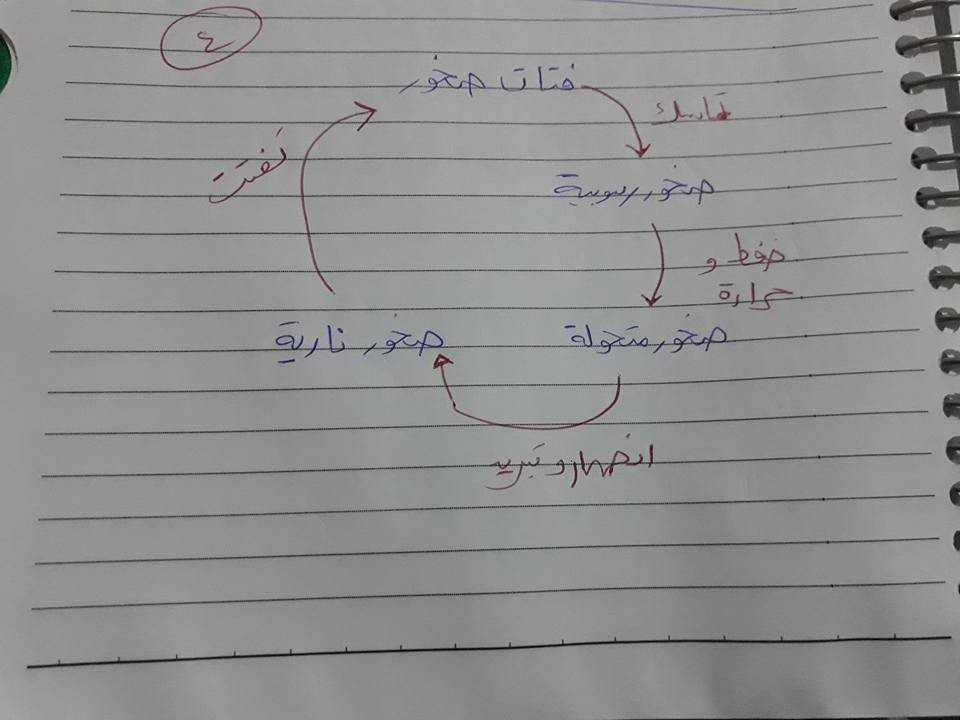 ٤
فتات صخور
تماسك
تفتت
صخور رسوبية
ضغط و
حرارة
صخور متحولة
صخور نارية
انصهار و تبريد